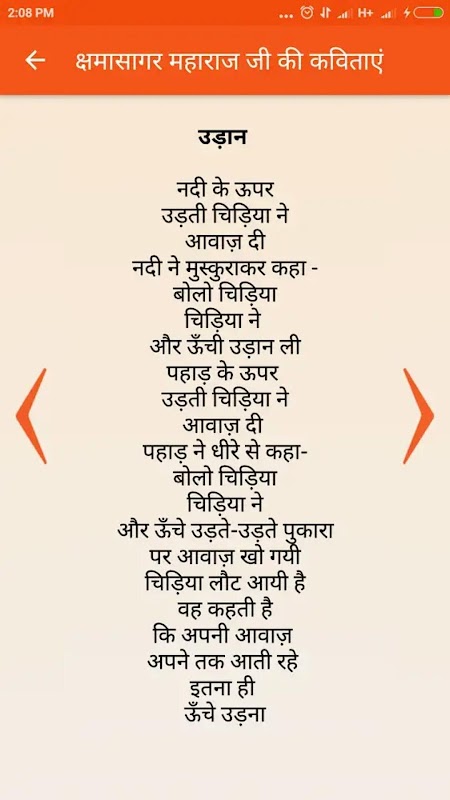 2:08 PM
... H+
क्षमासागर महाराज जी की कविताएं
उड़ान
नदी के ऊपर
उड़ती चिड़िया ने
आवाज़ दी
नदी ने मुस्कुराकर कहा -
बोलो चिड़िया
चिड़िया ने
और ऊँची उड़ान ली
पहाड़ के ऊपर
उड़ती चिड़िया ने
आवाज़ दी
पहाड़ ने धीरे से कहा-
बोलो चिड़िया
चिड़िया ने
और ऊँचे उड़ते-उड़ते पुकारा
पर आवाज़ खो गयी
चिड़िया लौट आयी है
वह कहती है
कि अपनी आवाज़
अपने तक आती रहे
इतना ही
ऊँचे उड़ना